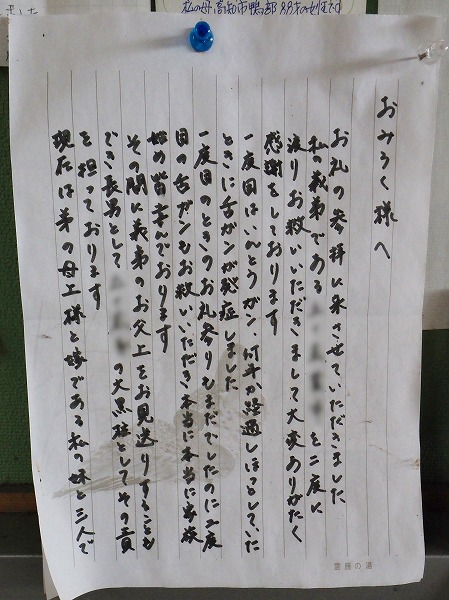 私の母 高知市鴨部 88才の女性です
おみろく様へ
お礼の参拝に来させていただきました、
私の義弟である を二度に
渡りお救いいただきまして大変ありがたく
感謝をしております
一度目はいんとうガン、何年か経過しほっとしていた
ときに舌ガンが発症しました
一度目のときのお礼参りもまだでしたのに二度
目の舌ガンもお救いいただき本当に本当に家族
始め皆幸んでおります
その間に義弟のお父上をお見送りすることも
でき長男として の大黒柱としてその責
を担っております
現在は弟の母上様と嫁である私の妹と三人で
雲龍の湯